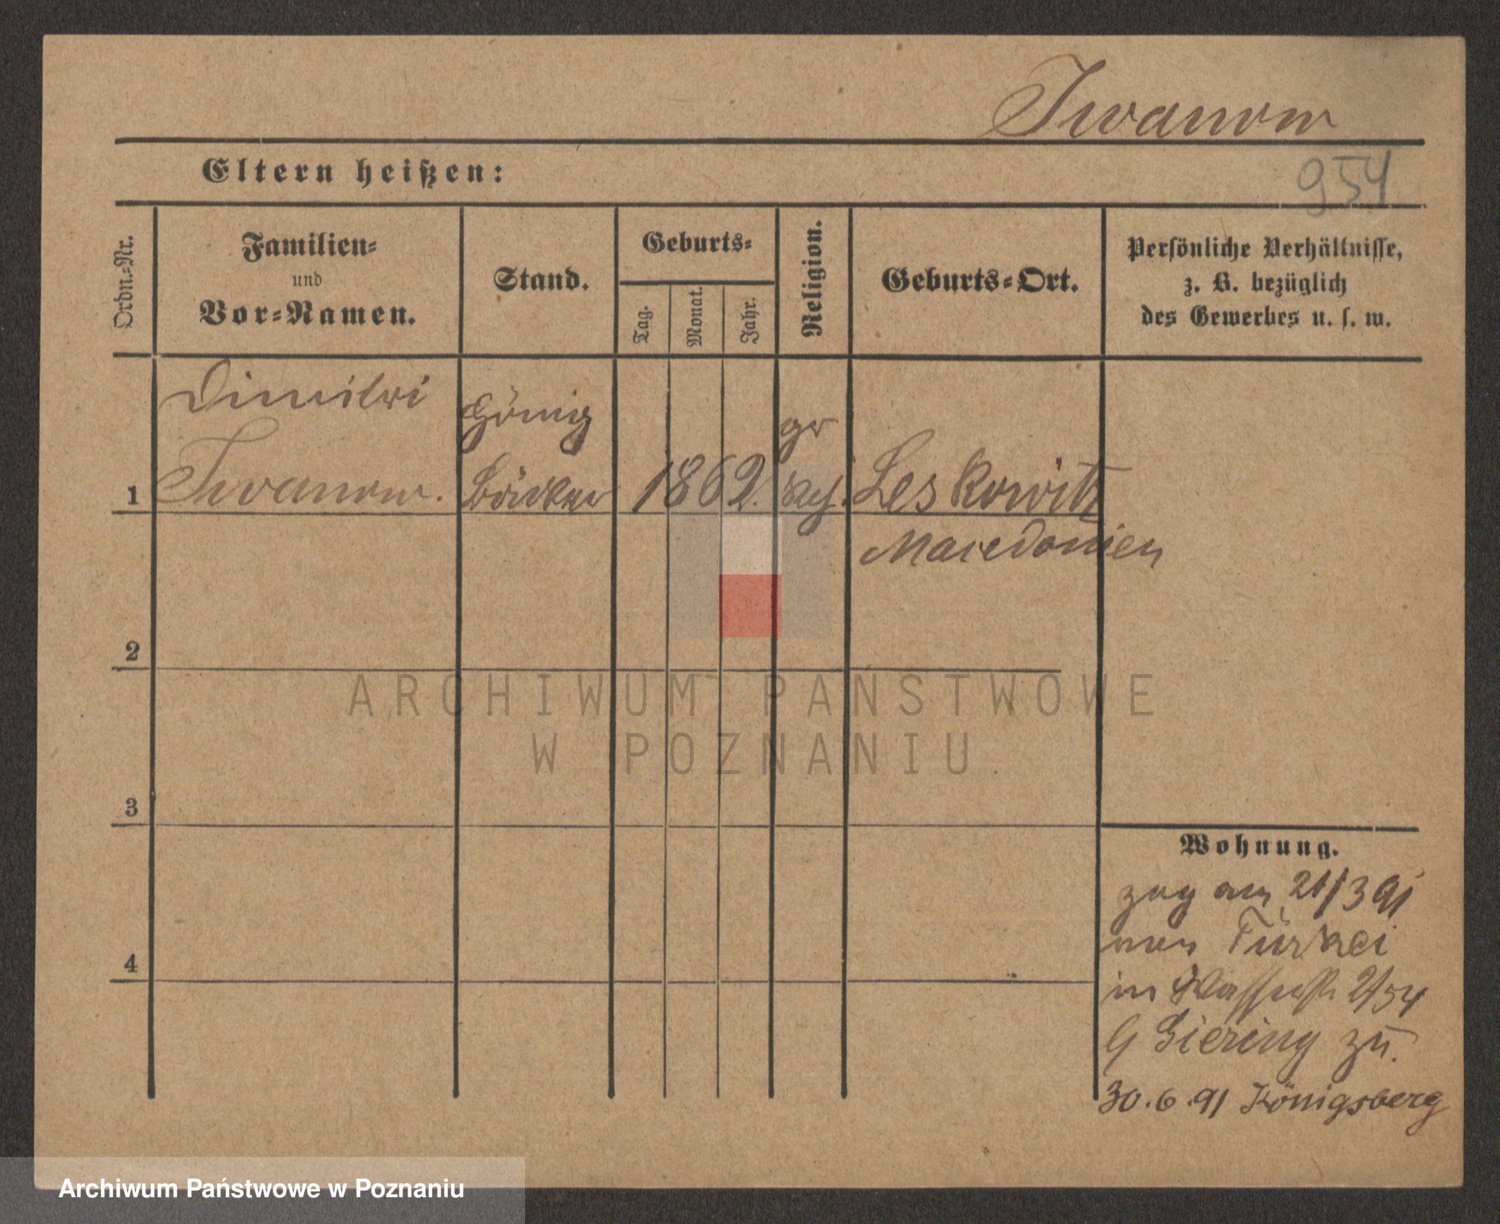 Iwanow
954
Eltern heißen:
Ordn.-Nr.
Familien-
und
Vor-Namen.
Stand.
Geburts-
Tag.
Monat.
Jahr.
Religion.
Geburts-Ort.
Persönliche Verhältnisse,
z. B. bezüglich
des Gewerbes u. s. w.
Dimitri
Iwanow.
Honig
Bäcker
1862.
gr
kath.
Leskowitz
Macedonien
1
2
3
4
ARCHIWUM PAŃSTWOWE
W POZNANIU
Wohnung.
zug am 21/3 91
von Türkei
in Wasserstr 2/54
Giering zu.
30.6.91 Königsberg
Archiwum Państwowe w Poznaniu